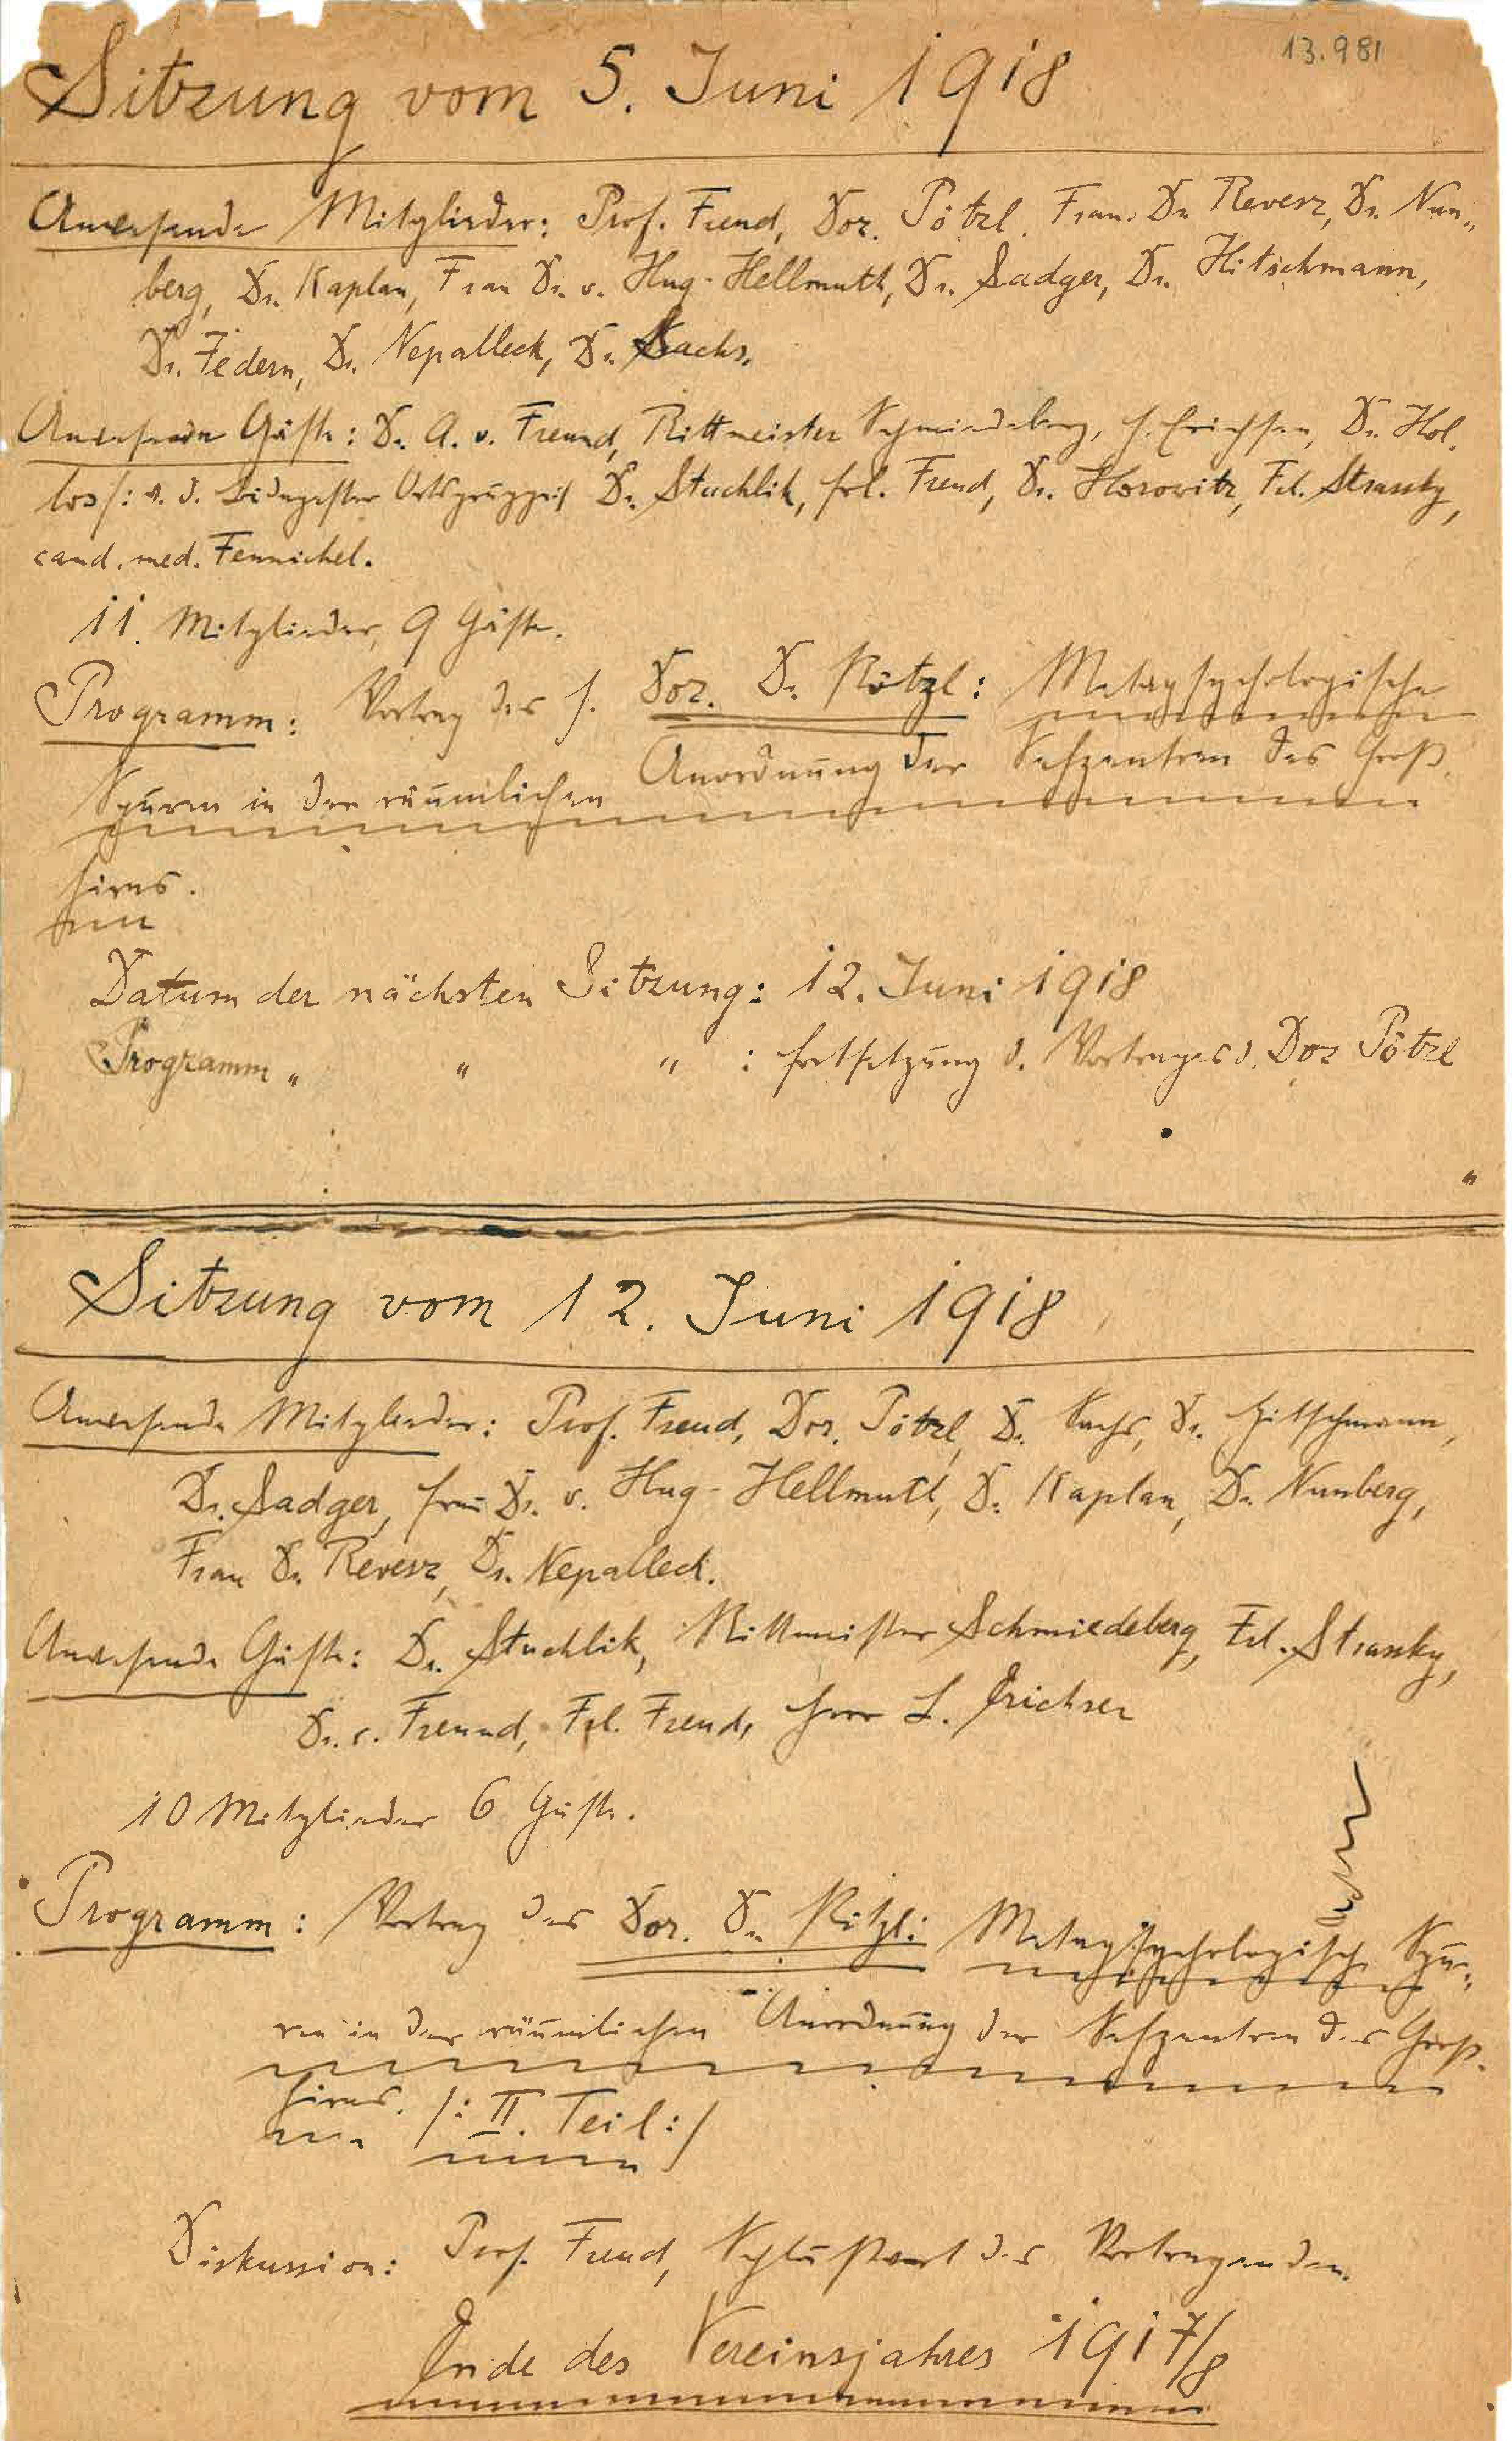 13.981
Sitzung vom 5. Juni 1918
Anwesende Mitglieder: Prof. Freud, Doz. Pötzl, Frau Dr. Revesz, Dr. Nun-
berg, Dr. Kaplan, Frau Dr. v. Hug-Hellmuth, Dr. Sadger, Dr. Hitschmann,
Dr. Federn, Dr. Nepalleck, Dr. Sachs.
Anwesende Gäste: Dr. A. v. Freund, Rittmeister Schmiedeberg, H. Erichsen, Dr. Hol-
los /: v. d. Budapester Ortsgruppe :/ Dr. Stuchlik, Frl. Freud, Dr. Horowitz, Frl. Stransky,
cand. med. Fennichel.
11 Mitglieder, 9 Gäste.
Programm: Vortrag des H. Doz. Dr. Pötzl: Metapsychologische
Spuren in der räumlichen Anordnung der Sehzentren des Groß-
hirns.
Datum der nächsten Sitzung: 12. Juni 1918
Programm " " " : Fortsetzung d. Vortrages d. Doz Pötzl
"
Sitzung vom 12. Juni 1918
Anwesende Mitglieder: Prof. Freud, Doz. Pötzl, Dr. Sachs, Dr. Hitschmann,
Dr. Sadger, Frau Dr. v. Hug-Hellmuth, Dr. Kaplan, Dr. Nunberg,
Frau Dr. Revesz, Dr. Nepalleck.
Anwesende Gäste: Dr. Stuchlik, Rittmeister Schmiedeberg, Frl. Stransky,
Dr. v. Freund, Frl. Freud, Herr L. Erichsen
10 Mitglieder 6 Gäste.
Programm: Vortrag des Doz. Dr. Pötzl: Metapsychologische Spu-
ren in der räumlichen Anordnung der Sehzentren des Groß-
hirns. /: II. Teil :/
Diskussion: Prof. Freud, Schlußwort des Vortragenden.
Ende des Vereinsjahres 1917/8